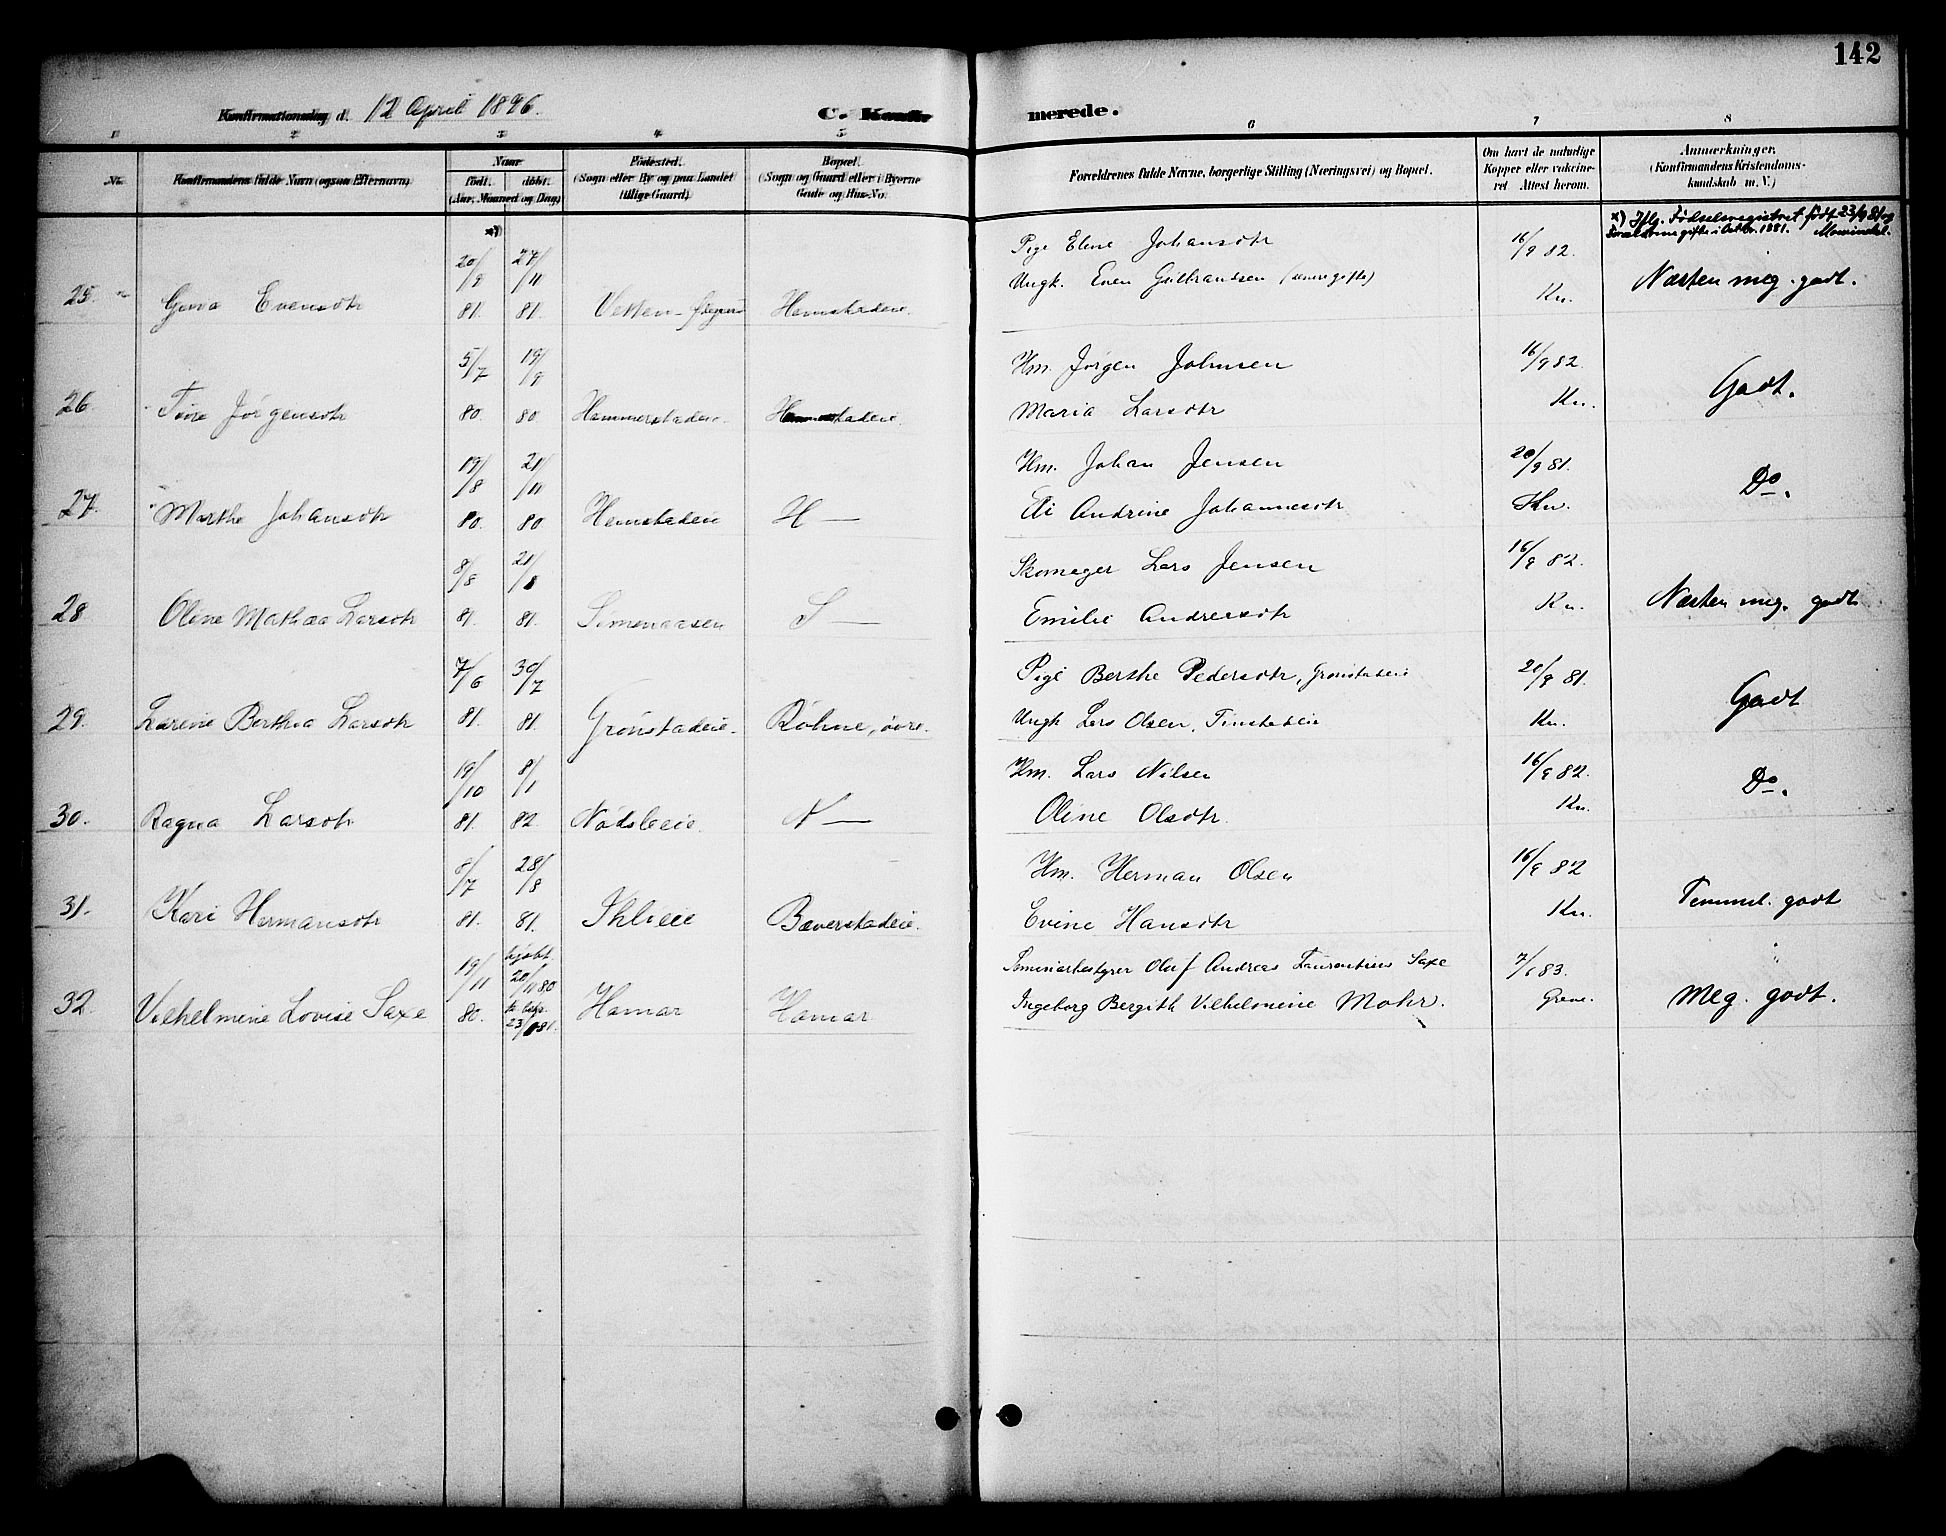 142
Konfirmationsdag d. 12 April 1896. C. Konfirmerede.
1 2 3 4 5 6 7 8
No. Konfirmandens fulde Navn (ogsaa Efternavn) Naar Födested. Bopæl. Forældrenes fulde Navne, borgerlige Stilling (Næringsvei) og Bopæl. Om havt de naturlige Anmærkninger.
født. døbt. (Sogn eller By og paa Landet (Sogn og Gaard eller i Byerne Kopper eller vakcine- (Konfirmandens Kristendoms-
(Aar, Maaned og Dag) tillige Gaard) Gade og Hus-No. ret Attest herom. kundskab m. V.)
x) Iflg. Fødselsregistret født 23/9 81 og
Forældrene gifte i Octbr. 1881.
x)
20/9 27/11 Pige Eline Johansdtr 16/9 82.
Ungk. Even Gulbrandsen (senere gifte) Næsten meg. godt.
25. Evensdtr 81. 81. Hemstadeie. Kn.
5/7 19/9 Hm. Jörgen Johnsen 16/9 82.
26 Jörgensdtr 80. 80. Hammerstadeie. Maria Larsdtr Kn. Godt.
19/8 21/11 Hm. Johan Jensen 20/9 81.
27. Marthe Johansdtr 80. 80. Hemstadeie H — Andrine Johannesdtr Kn. Do.
8/8 21/8 Skomager Lars Jensen 16/9 82.
28 Oline Mathea Larsdtr 81. 81. Simenaasen S — Emilie Andreasdtr Kn. Næsten meg. godt
7/6 30/7 Pige Berthe Pedersdtr, Grönstadeie 20/9 81.
29. Larine Berthea Larsdtr 81. 81. Grönstadeie. Röhne, övre. Ungk Lars Olsen, Kn. Godt
19/10 8/1 Hm. Lars Nilsen 16/9 82.
30. Ragna Larsdtr 81. 82. N — Oline Olsdtr. Kn. Do.
8/7 28/8 Hm. Herman Olsen 16/9 82
31. Kari Hermansdtr 81. 81. Bæverstadeie. Evine Hansdtr Kn. Temmel. godt
19/11 hjdbt. 20/11 80 Seminarbestyrer Oluf Andreas Laurentius Saxe 7/6 83.
32. Vilhelmine Lovise Saxe 80. Hamar Hamar Ingeborg Bergith Vilhelmine Mohr. Greve. Meg. godt.